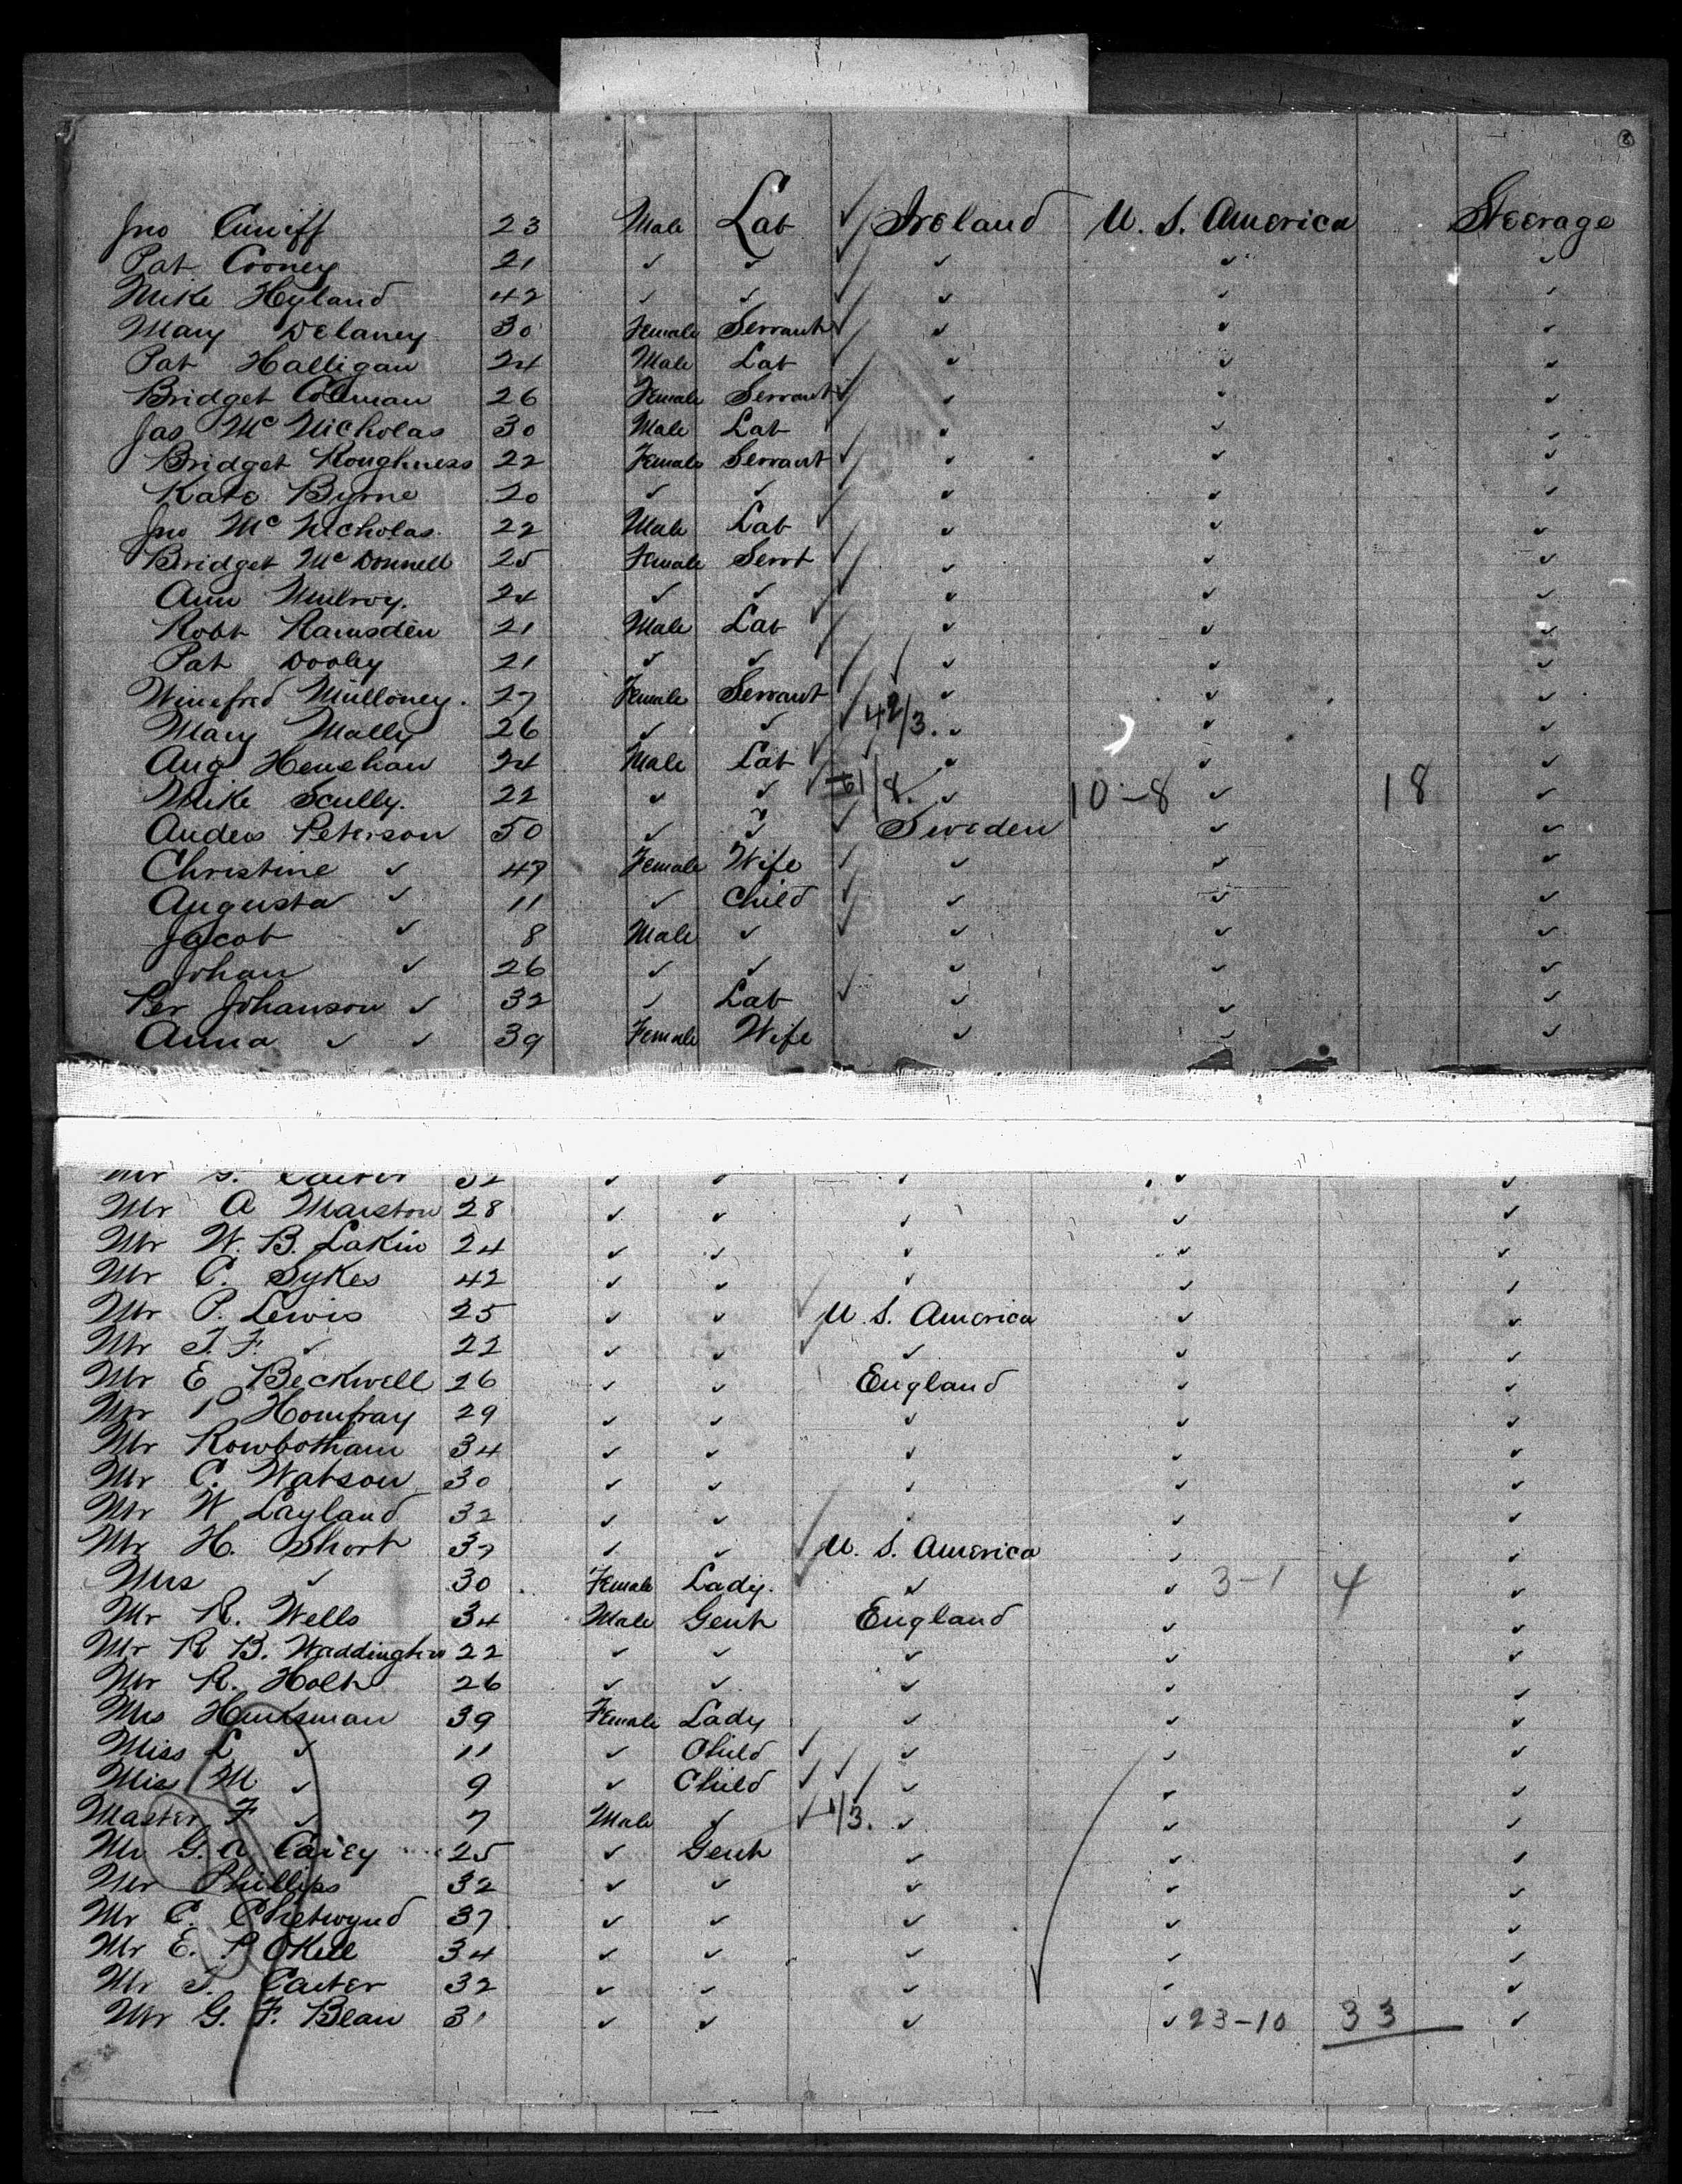 8
Jno Cuniff 23 Male Lab ✓ Ireland U. S. America Steerage
Pat Cooney 21 ✓ ✓ ✓ ✓ ✓ ✓
Mike Hyland 42 ✓ ✓ ✓ ✓ ✓ ✓
Mary Delaney 30 Female Servant ✓ ✓ ✓ ✓
Pat Halligan 24 Male Lab ✓ ✓ ✓ ✓
Bridget Colman 26 Female Servant ✓ ✓ ✓ ✓
Jas McNicholas 30 Male Lab ✓ ✓ ✓ ✓
Bridget Roughness 22 Female Servant ✓ ✓ ✓ ✓
Kate Byrne 20 ✓ ✓ ✓ ✓ ✓ ✓
Jno McNicholas 22 Male Lab ✓ ✓ ✓ ✓
Bridget McDonnell 25 Female Servt ✓ ✓ ✓ ✓
Ann Mulroy. 24 ✓ ✓ ✓ ✓ ✓ ✓
Robt Ramsden 21 Male Lab ✓ ✓ ✓ ✓
Pat Dooley 21 ✓ ✓ ✓ ✓ ✓ ✓
Winefred Mulloney. 27 Female Servant ✓ ✓ ✓ ✓
Mary Mally 26 ✓ ✓ ✓ 42/3. ✓ ✓ ✓
Aug Henehan 24 Male Lab ✓ ✓ ✓ ✓
Mike Scully. 22 ✓ ✓ ✓ 61/8. ✓ 10-8 ✓ 18 ✓
Anders Peterson 50 ✓ ✓ ✓ Sweden ✓ ✓
Christine ✓ 47 Female Wife ✓ ✓ ✓ ✓
Augusta ✓ 11 ✓ Child ✓ ✓ ✓ ✓
Jacob ✓ 8 Male ✓ ✓ ✓ ✓ ✓
Johan ✓ 26 ✓ ✓ ✓ ✓ ✓
Per Johanson ✓ 32 ✓ Lab ✓ ✓ ✓ ✓
Anna ✓ ✓ 39 Female Wife ✓ ✓ ✓
Mr A Marston 28 ✓ ✓ ✓ ✓ ✓
Mr W. B. Lakin 24 ✓ ✓ ✓ ✓ ✓
Mr C. Sykes 42 ✓ ✓ ✓ ✓ ✓
Mr P. Lewis 25 ✓ ✓ ✓ U. S. America ✓ ✓
Mr T. F. ✓ 22 ✓ ✓ ✓ ✓ ✓ ✓
Mr E Beckwell 26 ✓ ✓ England ✓ ✓
Mr P Homfray 29 ✓ ✓ ✓ ✓ ✓
Mr Rowbotham 34 ✓ ✓ ✓ ✓ ✓
Mr C. Watson 30 ✓ ✓ ✓ ✓ ✓
Mr W Layland 32 ✓ ✓ ✓ ✓ ✓
Mr H. Short 37 ✓ ✓ ✓ U. S. America ✓ ✓
Mrs ✓ 30 Female Lady. ✓ ✓ ✓ 3-1 4 ✓
Mr R. Wells 34 Male Gent England ✓ ✓
Mr R B. Waddington 22 ✓ ✓ ✓ ✓ ✓
Mr R. Holt 26 ✓ ✓ ✓ ✓ ✓
Mrs Hinksman 39 Female Lady ✓ ✓ ✓
Miss L ✓ 11 ✓ Child ✓ ✓ ✓ ✓
Miss M ✓ 9 ✓ Child ✓ ✓ ✓ ✓ ✓
Master F ✓ 7 Male ✓ ✓ 1/3. ✓ ✓ ✓
Mr G. A Carey 25 ✓ Gent ✓ ✓ ✓
Mr Phillips 32 ✓ ✓ ✓ ✓ ✓
Mr C. Chetwynd 37 ✓ ✓ ✓ ✓ ✓
Mr E. P Okell 34 ✓ ✓ ✓ ✓ ✓
Mr T. Carter 32 ✓ ✓ ✓ ✓ ✓
Mr G. F. Bean 31 ✓ ✓ ✓ ✓ 23-10 33 ✓